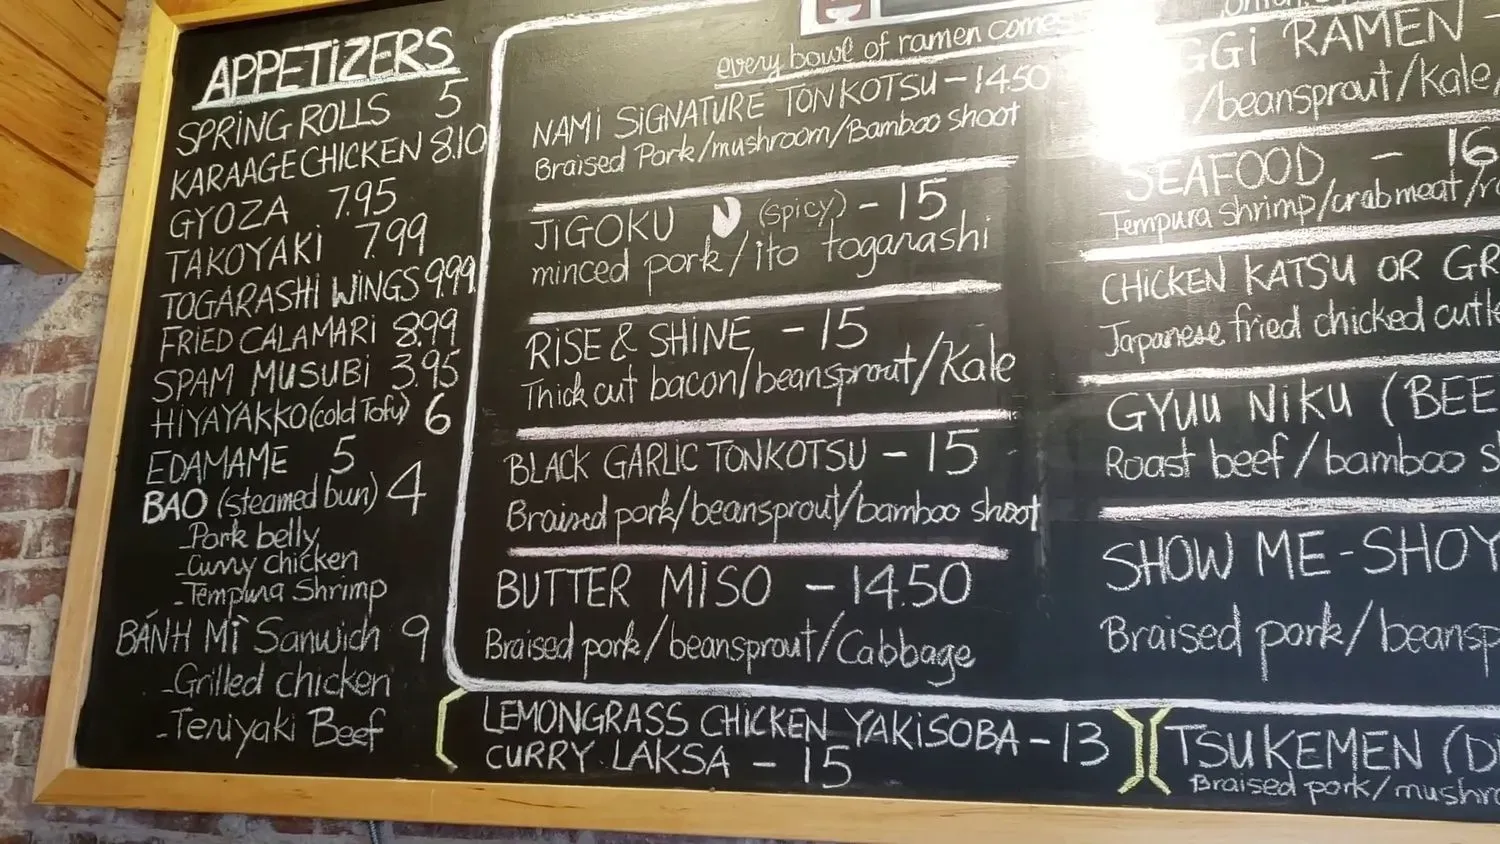 APPETIZERS
SPRING ROLLS 5
KARAAGE CHICKEN 8.10
GYOZA 7.95
TAKOYAKI 7.99
TOGARASHI WINGS 9.99
FRIED CALAMARI 8.99
SPAM MUSUBI 3.95
HIYAYAKKO (cold Tofu) 6
EDAMAME 5
BAO (steamed bun) 4
-Pork belly
-Curry chicken
-Tempura Shrimp
BÁNH MÌ Sanwich 9
-Grilled chicken
-Teriyaki Beef
every bowl of ramen comes
NAMI SIGNATURE TONKOTSU - 14.50
Braised Pork/mushroom/Bamboo shoot
JIGOKU (spicy) - 15
minced pork/ito togarashi
RISE & SHINE - 15
Thick cut bacon/beansprout/Kale
BLACK GARLIC TONKOTSU - 15
Braised pork/beansprout/bamboo shoot
BUTTER MISO - 14.50
Braised pork/beansprout/Cabbage
LEMONGRASS CHICKEN YAKISOBA - 13
CURRY LAKSA - 15
RAMEN -
/beansprout/Kale/
SEAFOOD - 16
Tempura shrimp/crab meat/
CHICKEN KATSU OR
Japanese fried chicked
GYUU NIKU
Roast beef/bamboo
SHOW ME-
Braised pork/
TSUKEMEN
Braised pork/